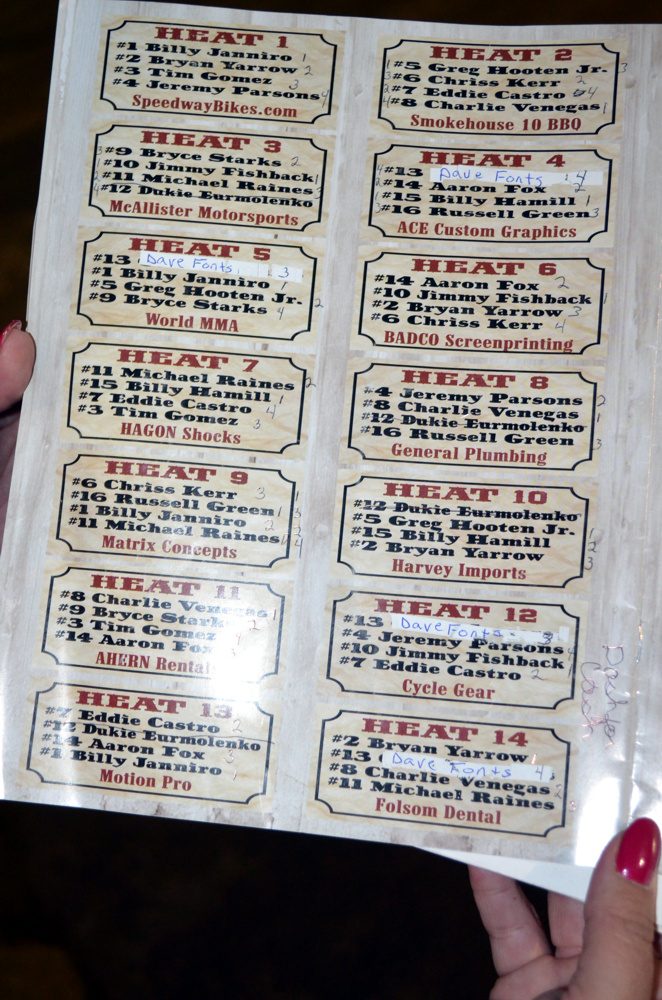 HEAT 1
#1 Billy Janniro 1
#2 Bryan Yarrow 2
#3 Tim Gomez 3
#4 Jeremy Parsons 4
SpeedwayBikes.com
HEAT 2
#5 Greg Hooten Jr. 3
#6 Chriss Kerr 2
#7 Eddie Castro 4
#8 Charlie Venegas 1
Smokehouse 10 BBQ
HEAT 3
#9 Bryce Starks 2
#10 Jimmy Fishback 1
#11 Michael Raines 3
#12 Dukie Eurmolenko
McAllister Motorsports
HEAT 4
#13 Dave Fonts : 4
#14 Aaron Fox 2
#15 Billy Hamill 1
#16 Russell Green 3
ACE Custom Graphics
HEAT 5
#13 Dave Fonts 3
#1 Billy Janniro 1
#5 Greg Hooten Jr. 2
#9 Bryce Starks 4
World MMA
HEAT 6
#14 Aaron Fox 2
#10 Jimmy Fishback 1
#2 Bryan Yarrow 3
#6 Chriss Kerr 4
BADCO Screenprinting
HEAT 7
#11 Michael Raines 2
#15 Billy Hamill 1
#7 Eddie Castro 4
#3 Tim Gomez 3
HAGON Shocks
HEAT 8
#4 Jeremy Parsons 2
#8 Charlie Venegas 1
#12 Dukie Eurmolenko
#16 Russell Green 3
General Plumbing
HEAT 9
#6 Chriss Kerr 3
#16 Russell Green
#1 Billy Janniro
#11 Michael Raines
Matrix Concepts
HEAT 10
#12 Dukie Eurmolenko
#5 Greg Hooten Jr. 1
#15 Billy Hamill 2
#2 Bryan Yarrow 3
Harvey Imports
HEAT 11
#8 Charlie Venegas 1
#9 Bryce Starks 2
#3 Tim Gomez
#14 Aaron Fox
AHERN Rental
HEAT 12
#13 Dave Fonts 3
#4 Jeremy Parsons
#10 Jimmy Fishback 1
#7 Eddie Castro 2
Cycle Gear
HEAT 13
#7 Eddie Castro 2
#12 Dukie Eurmolenko
#14 Aaron Fox 3
#1 Billy Janniro 1
Motion Pro
HEAT 14
#2 Bryan Yarrow
#13 Dave Fonts 4
#8 Charlie Venegas
#11 Michael Raines
Folsom Dental